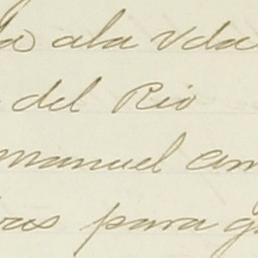 a ala Vda
del Rio
manuel
para